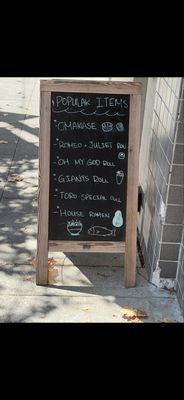 POPULAR ITEMS
- OMAKASE
- ROMEO + JULIET ROLL
- OH MY GOD ROLL
- GIANTS ROLL
- TORO SPECIAL ROLL
- HOUSE RAMEN